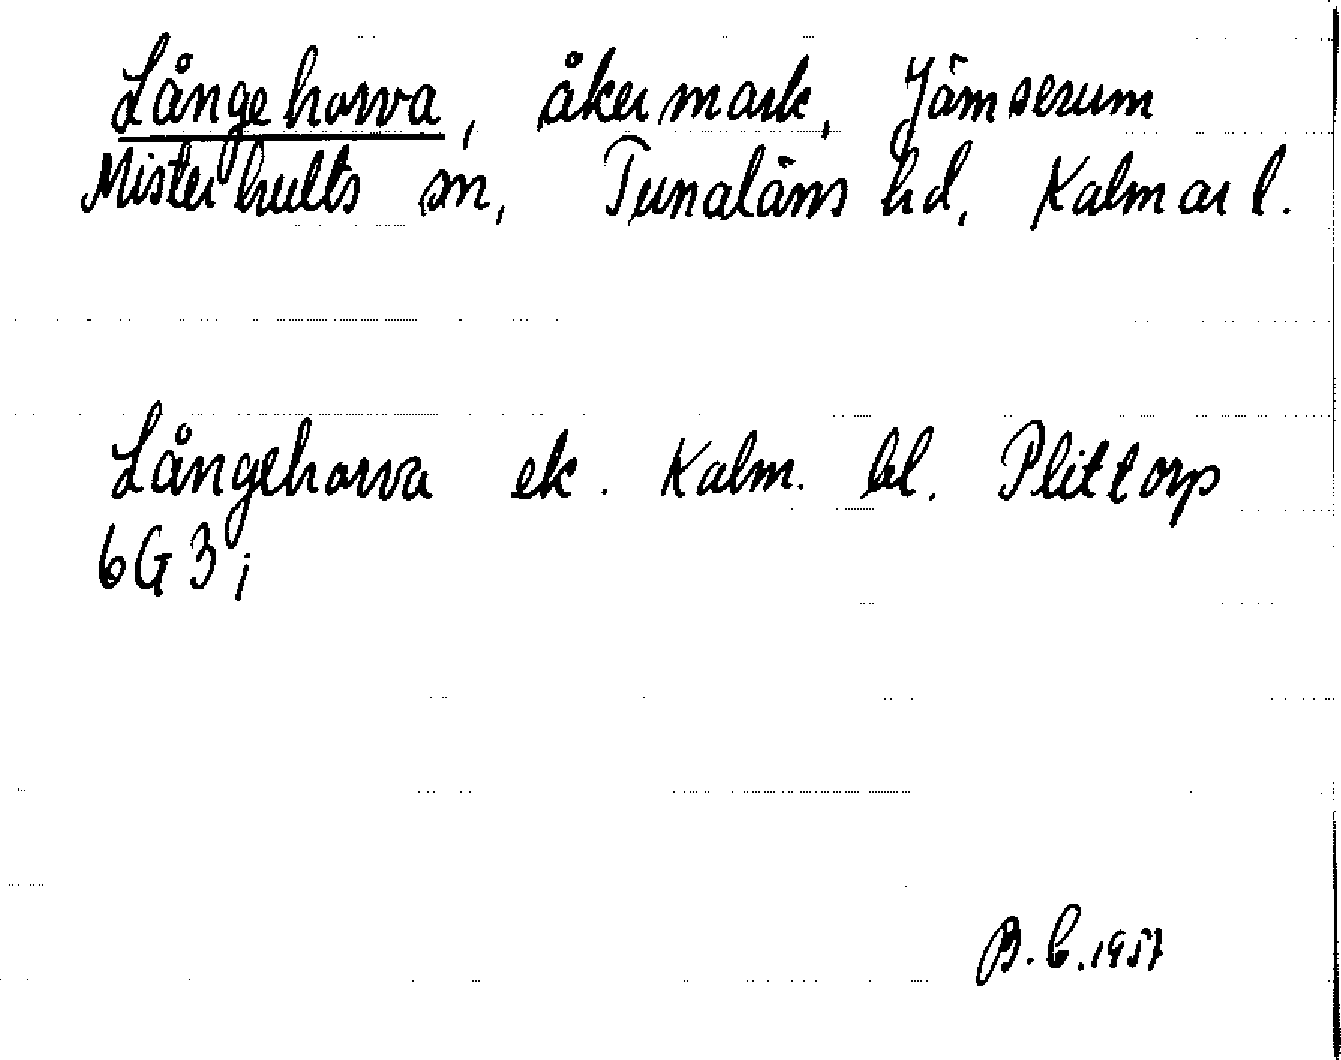 Långehorva, åkermark, Jämserum
Misterhults sn, Tunaläns hd, Kalmar l.
Långehorva ek. Kalm. bl. Plittorp
6G3i
B.C.1957